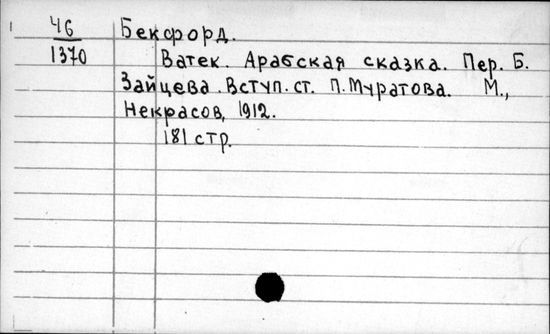 46
1370
Бекфорд.
Ватек. Арабская сказка. Пер. Б.
Зайцева. Вступ. ст. П. Муратова. М.,
Некрасов, 1912.
181 стр.